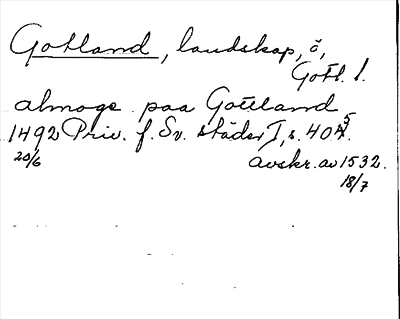 Gotland, landskap, ö,
Gotl. l.
almoge paa Gotland
1492 Priv. f. Sv. städer I, s. 405.
20/6 avskr. av 1532.
18/7